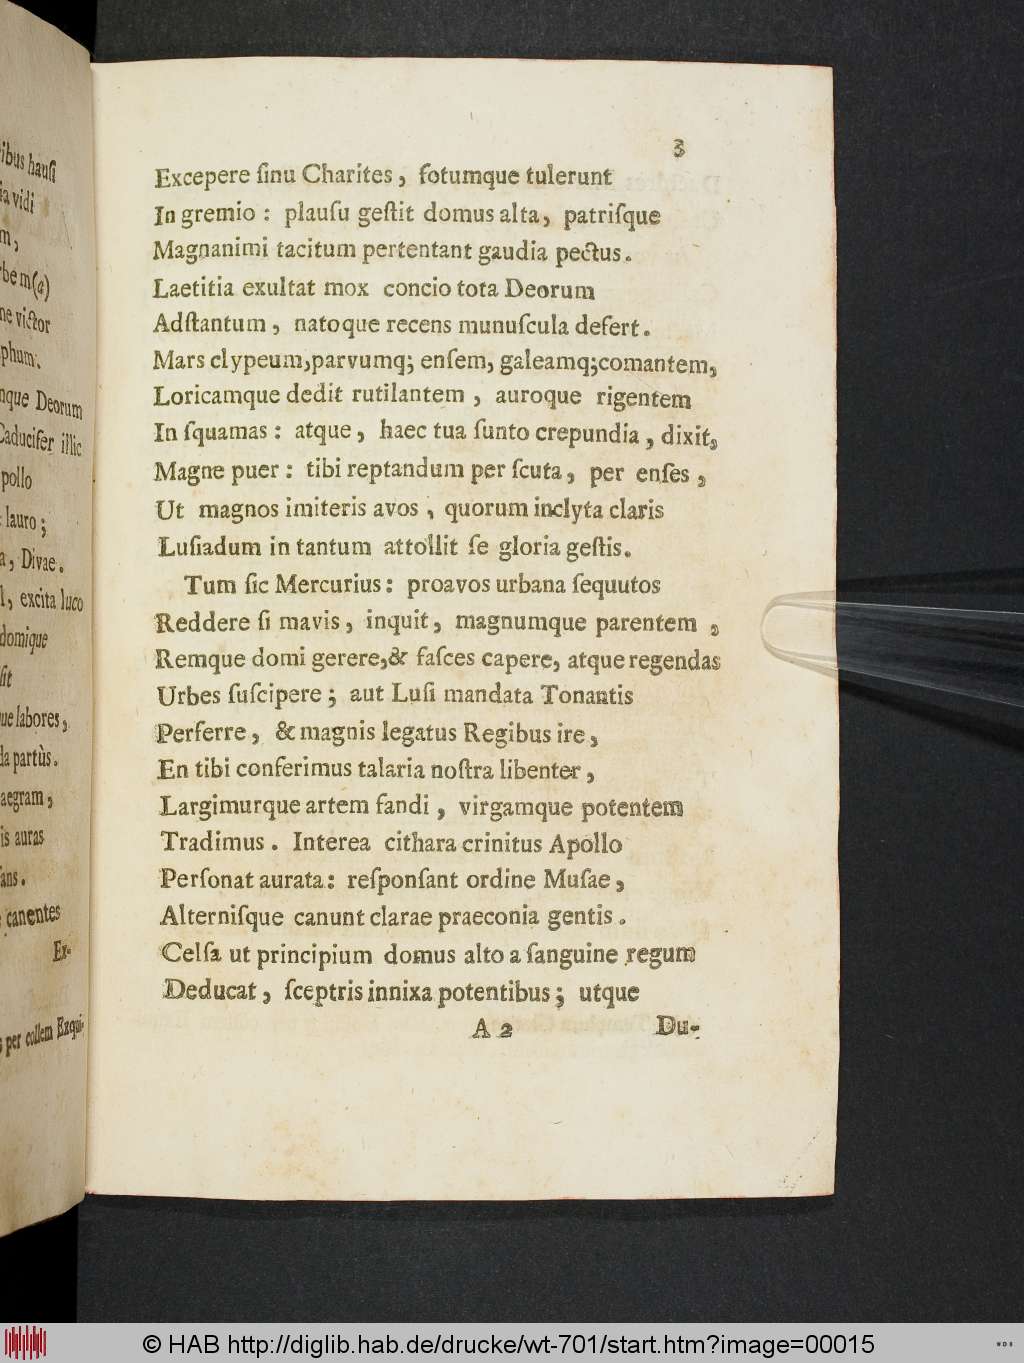 ibus hauſi
ia vidi
m,
rbem(a)
ne victor
phum.
nque Deorum
Caducifer illic
pollo
lauro;
a, Divae.
l, excita luco
domique
ſit
ue labores,
da partùs.
aegram,
is auras
ſans.
canentes
Ex-
per collem Exqui-
3
Excepere ſinu Charites, fotumque tulerunt
In gremio: plauſu geſtit domus alta, patriſque
Magnanimi tacitum pertentant gaudia pectus.
Laetitia exultat mox concio tota Deorum
Adſtantum, natoque recens munuſcula defert.
Mars clypeum,parvumq; enſem, galeamq;comantem,
Loricamque dedit rutilantem, auroque rigentem
In ſquamas: atque, haec tua ſunto crepundia, dixit,
Magne puer: tibi reptandum per ſcuta, per enſes,
Ut magnos imiteris avos, quorum inclyta claris
Luſiadum in tantum attollit ſe gloria geſtis.
Tum ſic Mercurius: proavos urbana ſequutos
Reddere ſi mavis, inquit, magnumque parentem,
Remque domi gerere,& faſces capere, atque regendas
Urbes ſuſcipere; aut Luſi mandata Tonantis
Perferre, & magnis legatus Regibus ire,
En tibi conferimus talaria noſtra libenter,
Largimurque artem fandi, virgamque potentem
Tradimus. Interea cithara crinitus Apollo
Perſonat aurata: reſponſant ordine Muſae,
Alterniſque canunt clarae praeconia gentis.
Celſa ut principium domus alto a ſanguine regum
Deducat, ſceptris innixa potentibus; utque
A 2 Du-
© HAB http://diglib.hab.de/drucke/wt-701/start.htm?image=00015